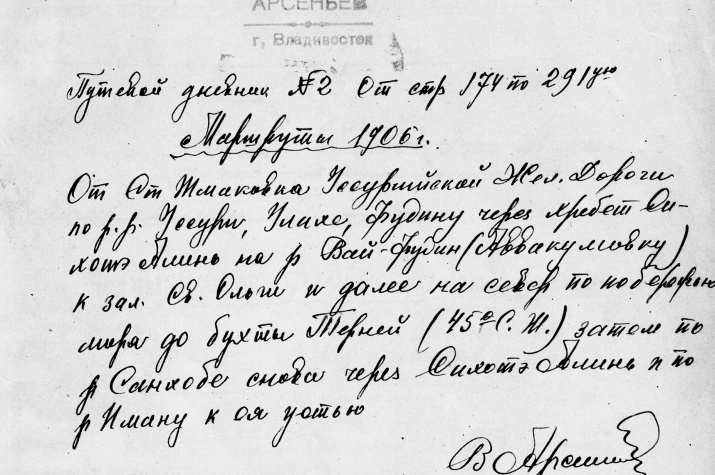 АРСЕНЬЕВ
г. Владивосток
Путевой дневник №2 От стр 174 по 291ую
Маршруты 1906 г.
От Ст Шмаковка Уссурийской Жел. Дороги
по р.р. Уссури, Улахе, Фудину через хребет Си-
хотэ Алинь на р Вай-Фудин (Аввакумовку)
к зал. Св. Ольги и далее на север по побережью
моря до бухты Терней (45° С. Ш.) затем по
р Санхобе снова через Сихотэ Алинь и по
р Иману к ея устью